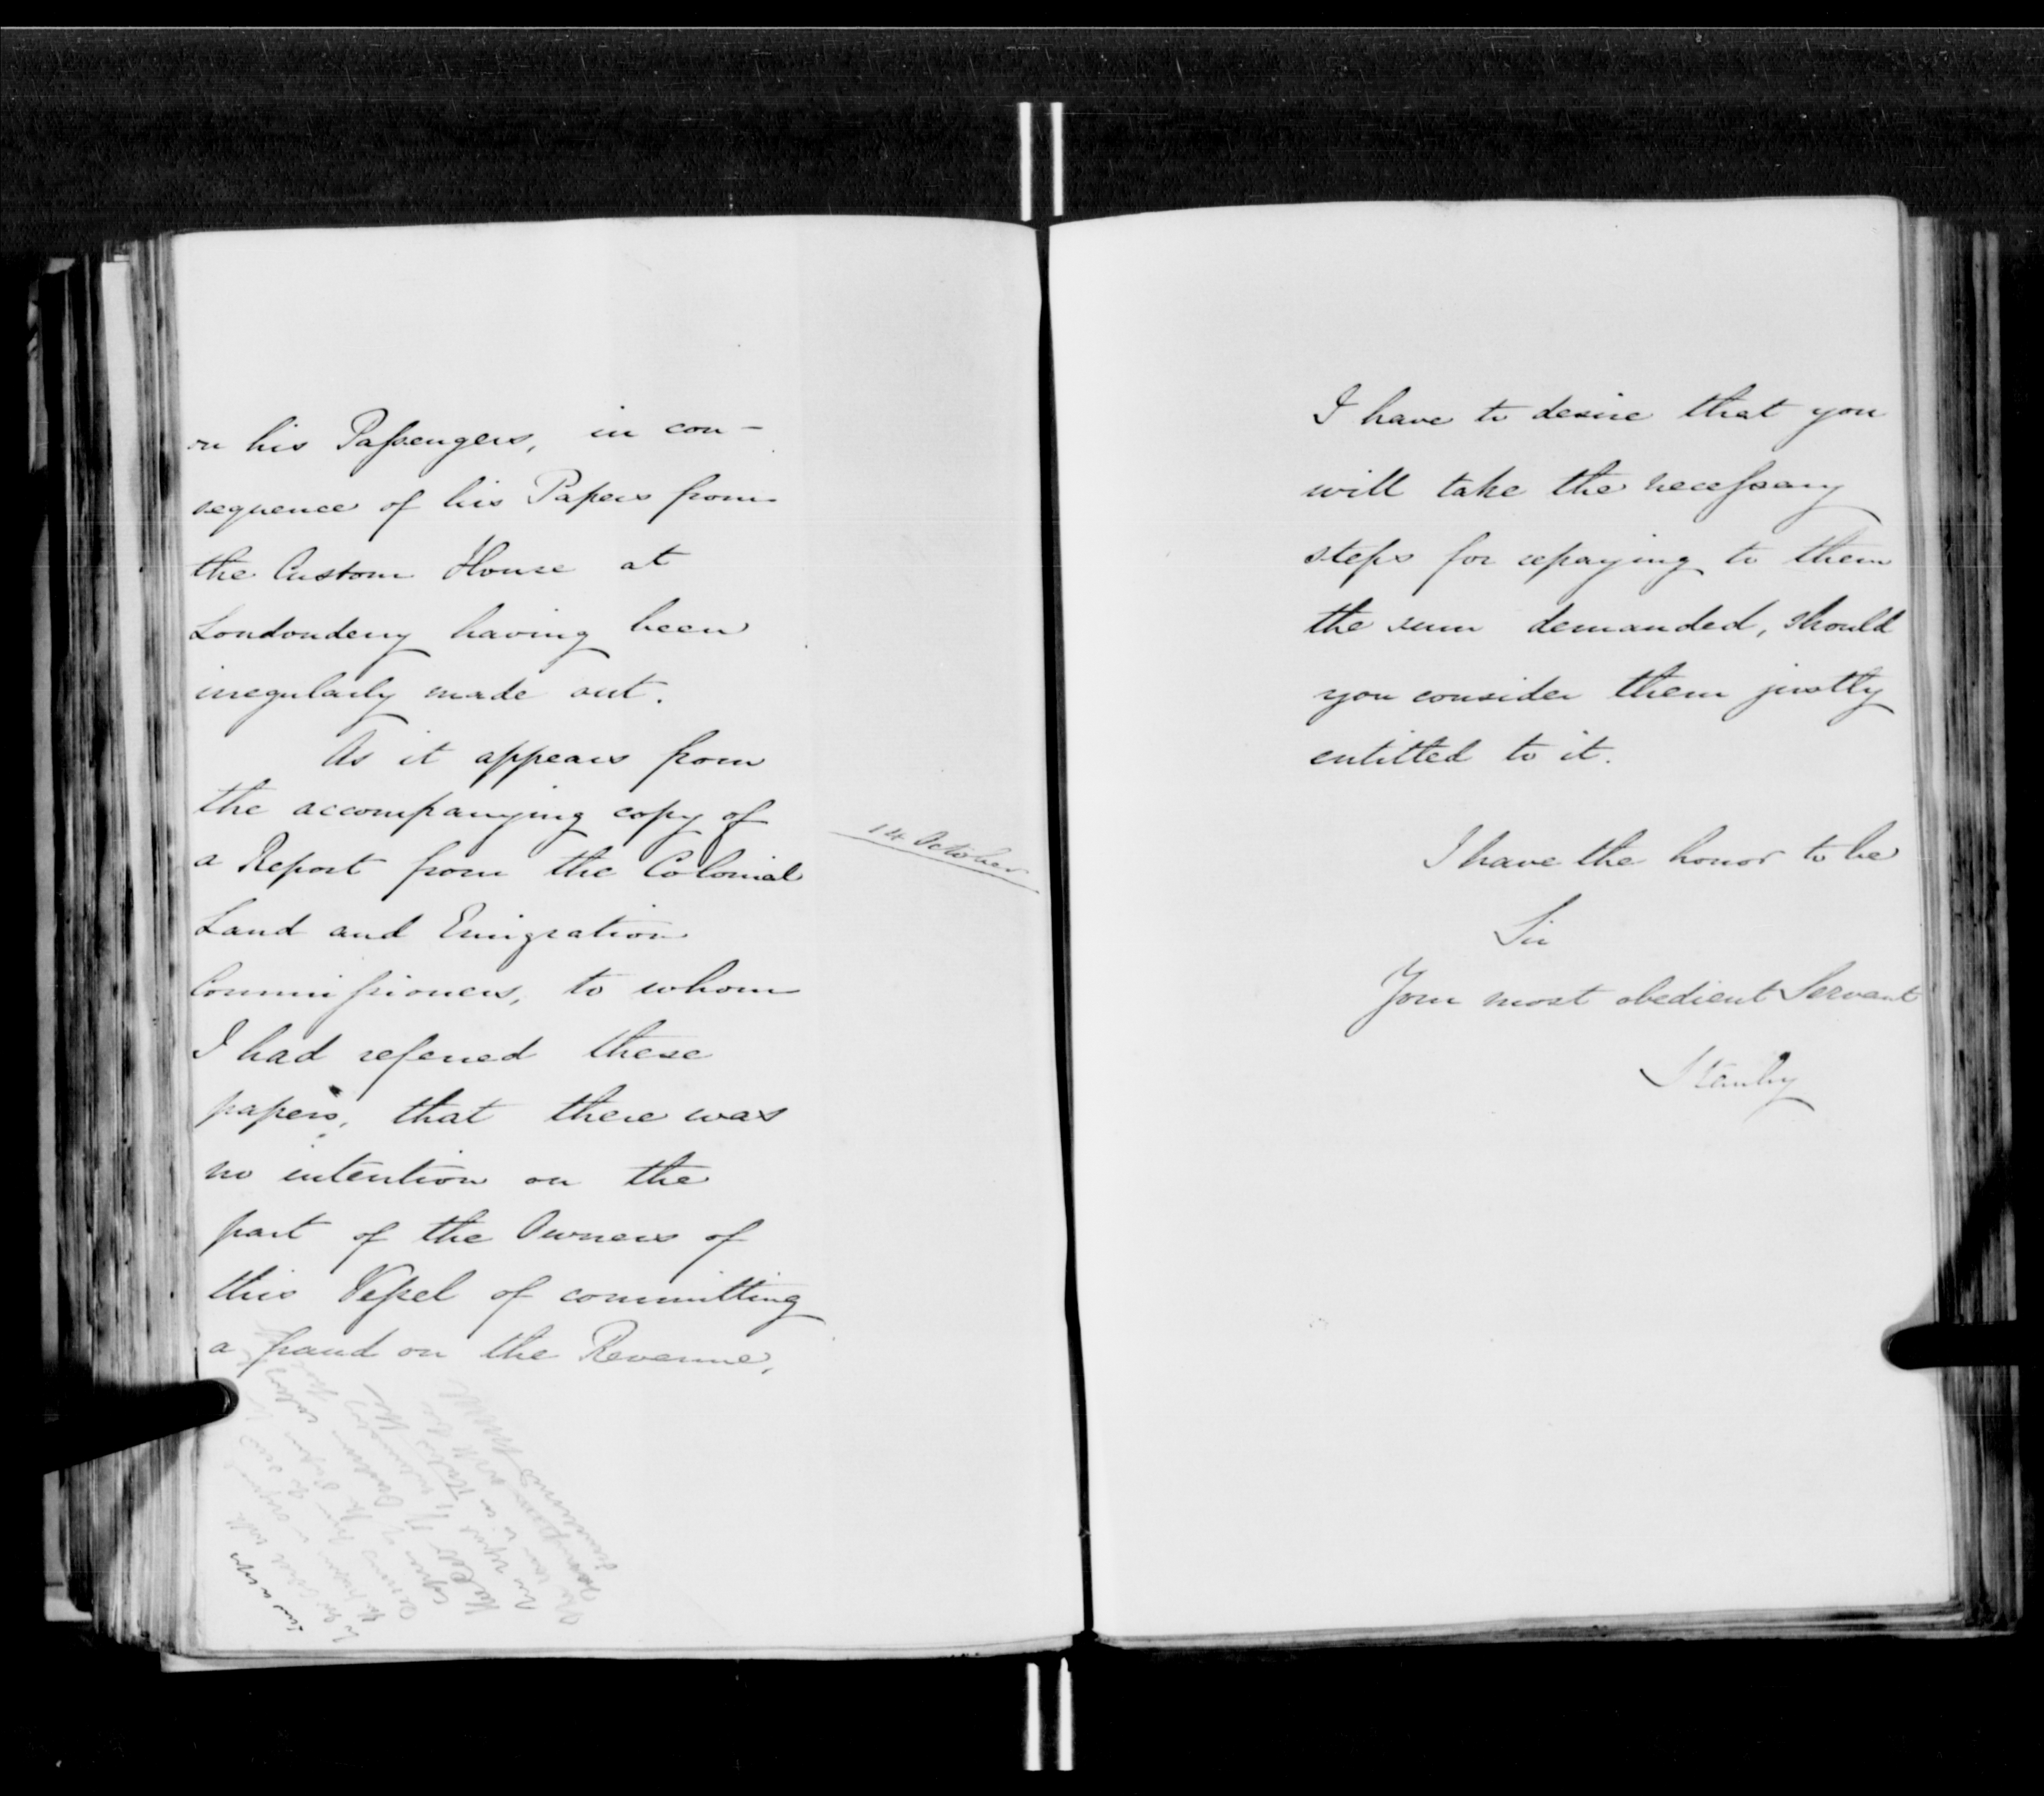 on his Passengers, in con-
sequence of his Papers from
the Custom House at
Londonderry having been
irregularly made out.
As it appears from
the accompanying copy of
a Report from the Colonial
Land and Emigration
Commissioners, to whom
I had referred these
papers, that there was
no intention on the
part of the Owners of
this Vessel of committing
a fraud on the Revenue,
14 October
I have to desire that you
will take the necessary
steps for repaying to them
the sum demanded, should
you consider them justly
entitled to it.
I have the honor to be
Sir
Your most obedient Servant
Stanley